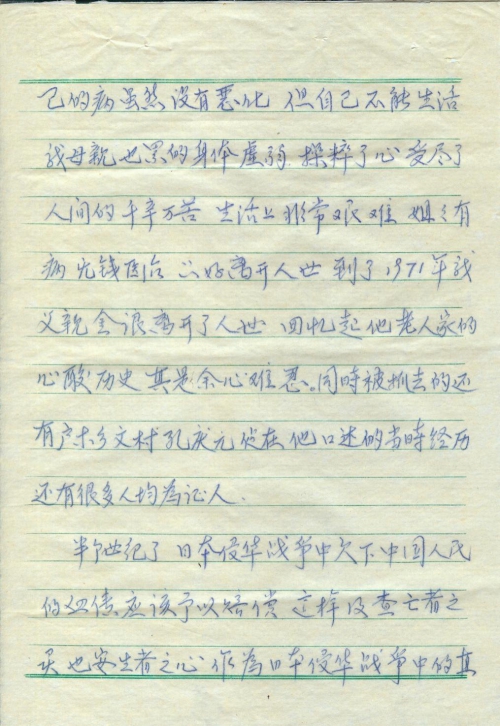 己的病虽然没有恶化 但自己不能生活
我母亲也累的身体虚弱 操粹了心 受尽了
人间的千辛万苦 生活上非常艰难 姐之有
病无钱医治 只好离开人世 到了1971年我
父亲含泪离开了人世 回忆起他老人家的
心酸历史 真是余心难忍。同時被抓去的还
有 乡文村孔庆元 在 他口述的当時经历
还有很多人均為证人.
半个世纪了 日本侵华战争中欠下中国人民
的血债 应该予以赔偿 这样 亡者之
灵 也安生者之心 作為日本侵华战争中的真